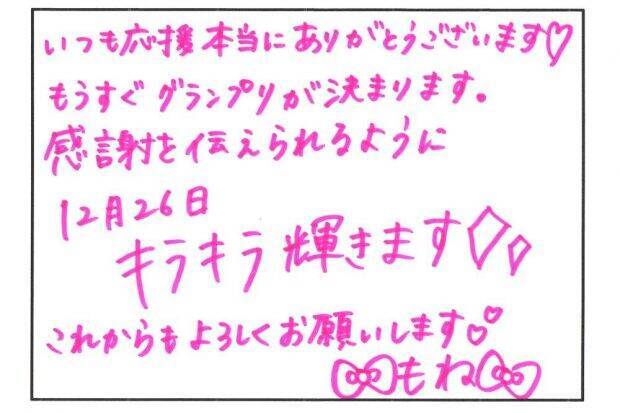 いつも応援本当にありがとうございます♡
もうすぐグランプリが決まります。
感謝を伝えられるように
12月26日
キラキラ輝きます
これからもよろしくお願いします♡
もね